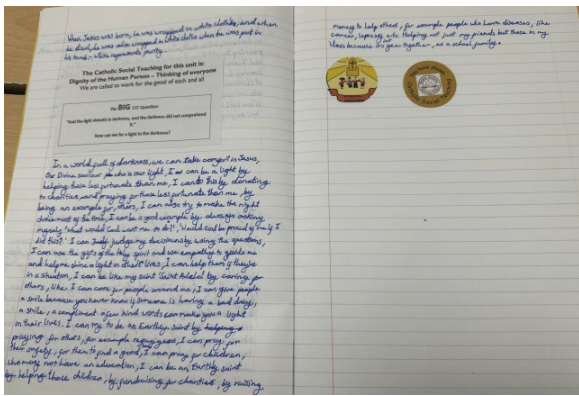 When Jesus was born, he was wrapped in white clothes, and when
he died, he was also wrapped in white cloths when he was put in
his tomb - white represents purity.
The Catholic Social Teaching for this unit is:
Dignity of the Human Person - Thinking of everyone
We are called to work for the good of each and all
The BIG CST Question
"And the light shineth in darkness, and the darkness did not comprehend
it."
How can we be a light in the darkness?
In a world full of darkness, we can take comfort in Jesus,
Our Divine saviour who is our light, I can be a light by
helping those less fortunate than me, I can do this by donating
to charities, and praying for those less fortunate than me, by
being an example for others, I can also try to make the right
choice most of the time, I can be a good example by always asking
myself 'what would God want me to do?', 'would God be proud of me if I
did this?' I can judge my decisions by using the questions,
I can use the gifts of the Holy Spirit and use empathy to guide me
and help me shine a light in others lives, I can help them if they're
in a situation, I can be like my saint Saint by caring for
others, like I can care for people around me, I can give people
a smile because you never know if someone is having a bad day,
a smile, a compliment a few kind words can make you a light
in their lives. I can try to be an Earthly saint by helping
praying for others, for example refugees, I can pray for
their safety, for them to find a good, I can pray for children,
who may not have an education, I can be an Earthly saint
by helping those children, by fundraising for charities, by raising
money to help others, for example people who have diseases, like
cancer, leprosy etc. Helping not just my friends but those in my
class because we together, as a school family.